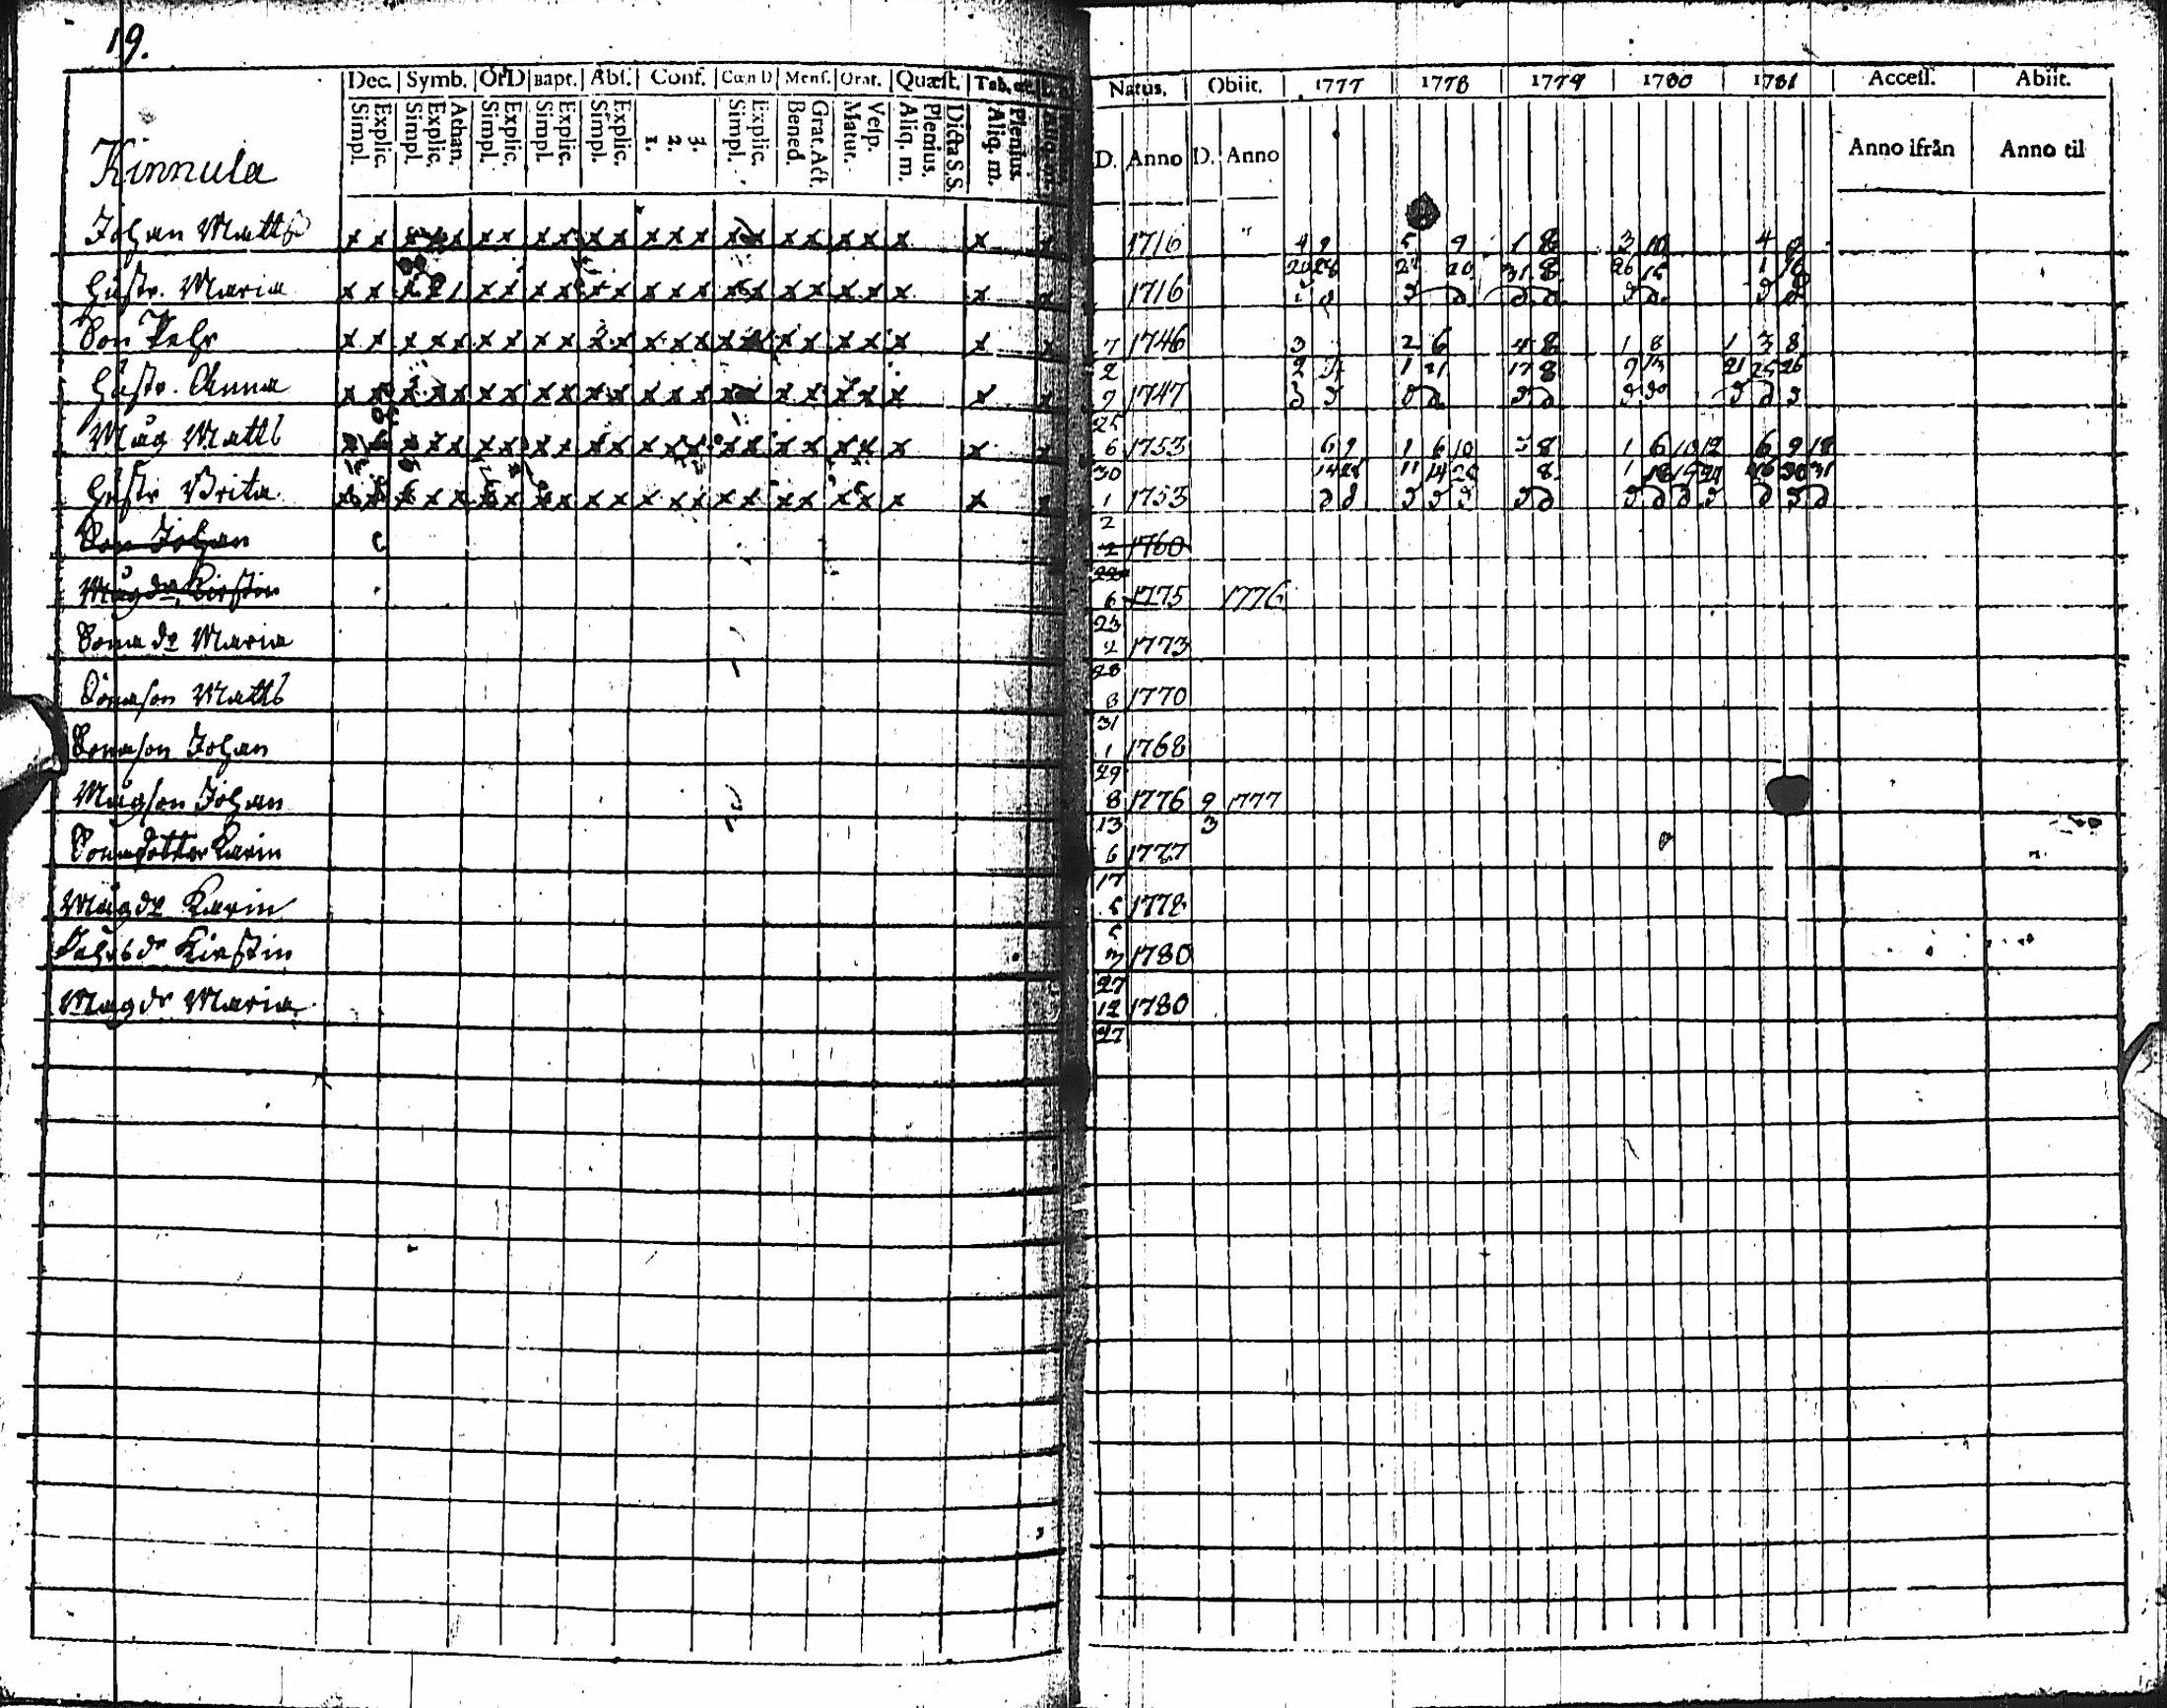 19.
Dec. Symb. OrD Bapt. Abs. Conf. Cœn D Menſ. Orat. Quæſt. Tab. Natus. Obiit. 1777 1778 1779 1780 1781 Acceſſ. Abiit.
Explic. Simpl. Athan. Explic. Simpl. Explic. Simpl. Explic. Simpl. Explic. Simpl. 3. 2. 1. Explic. Simpl. Grat. Act. Bened. Veſp. Matut. Dicta S.S. Plenius. Aliq. m. Plenius. Aliq. m. D. Anno D. Anno Anno ifrån Anno til
Kinnula
Johan Matts x x x x x x x x x x x x x x x x x x x x x 1716 4 9 5 9 1 8 3 10 4
28 27 20 31 8 26 15 1
Hustr. Maria x x x x x x x x x x x x x x x x x x x x 1716
Son Pehr x x x x x x x x x x x x x x x x x x x x 7 1746 3 2 6 4 8 1 8 1 3 8
2 2 1 21 17 8 9 13 21 25 26
Hustr. Anna x x x x x x x x x x x x x x x x x x x x x 9 1747
25
Måg Matts x x x x x x x x x x x x x x x x x x x 6 1753 6 9 1 6 10 3 8 1 6 10 12 6 9 12
30 11 14 8 1 30 31
Hustr Brita x x x x x x x x x x x x x x x x x x 1 1753
2
Son Johan 2 1760
Mågdr. Kirstin 6 1775 1776
23
Sona dr Maria 2 1773
28
Sonason Matts 8 1770
31
Sonason Johan 1 1768
29
Mågson Johan 8 1776 9 1777
13 3
Sonadotter Karin 6 1777
17
Mågdr Karin 5 1778
5
Pehrsdr Kirstin 3 1780
27
Mågdr Maria 12 1780
27